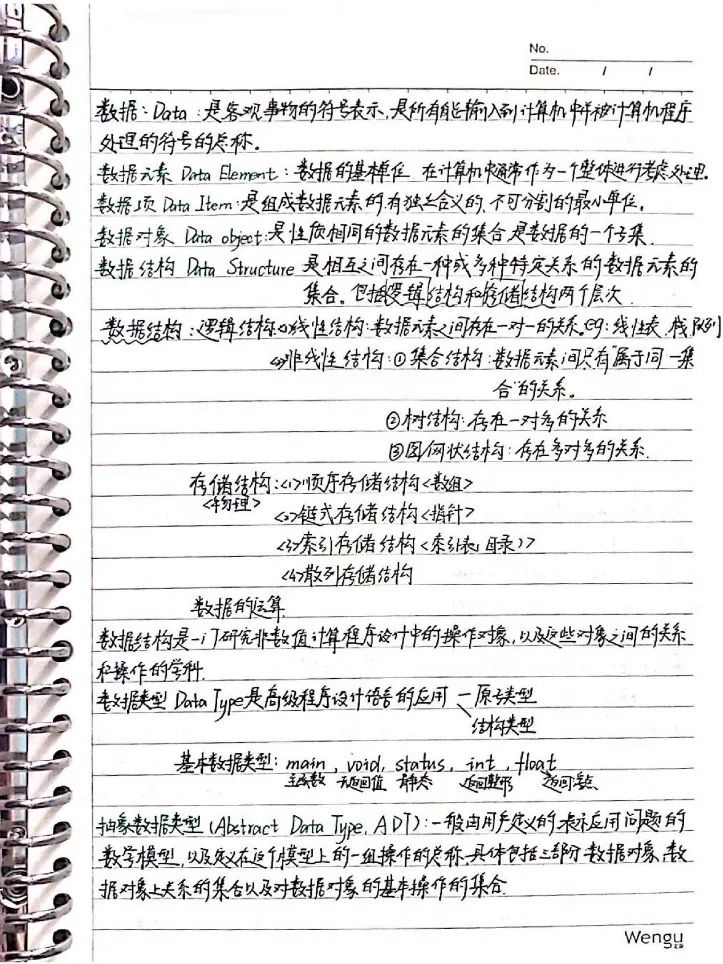 No.
Date. / /
数据：Data：是客观事物的符号表示，是所有能输入到计算机中并被计算机程序
处理的符号的总称。
数据元素 Data Element：数据的基本单位，在计算机中通常作为一个整体进行考虑处理。
数据项 Data Item：是组成数据元素的，有独立含义的，不可分割的最小单位。
数据对象 Data object：是性质相同的数据元素的集合，是数据的一个子集。
数据结构 Data Structure 是相互之间存在一种或多种特定关系的数据元素的
集合。包括逻辑结构和存储结构两个层次
数据结构：逻辑结构<1>线性结构：数据元素之间存在一对一的关系。eg：线性表，栈，队列
<2>非线性结构：①集合结构：数据元素间只有“属于同一集
合”的关系。
②树结构：存在一对多的关系
③图/网状结构：存在多对多的关系.
存储结构：<1>顺序存储结构<数组>
<物理>
<2>链式存储结构<指针>
<3>索引存储结构<索引表(目录)>
<4>散列存储结构
数据的运算
数据结构是一门研究非数值计算程序设计中的操作对象，以及这些对象之间的关系
和操作的学科.
数据类型 Data Type是高级程序设计语言的应用 — 原子类型
结构类型
基本数据类型：main，void，status，int，float
主函数 无返回值 静态 返回整形 返回浮点
抽象数据类型(Abstract Data Type，ADT)：一般由用户定义的，表示应用问题的
数学模型，以及定义在这个模型上的一组操作的总称，具体包括三部分 数据对象，数
据对象上关系的集合以及对数据对象的基本操作的集合
Wengu